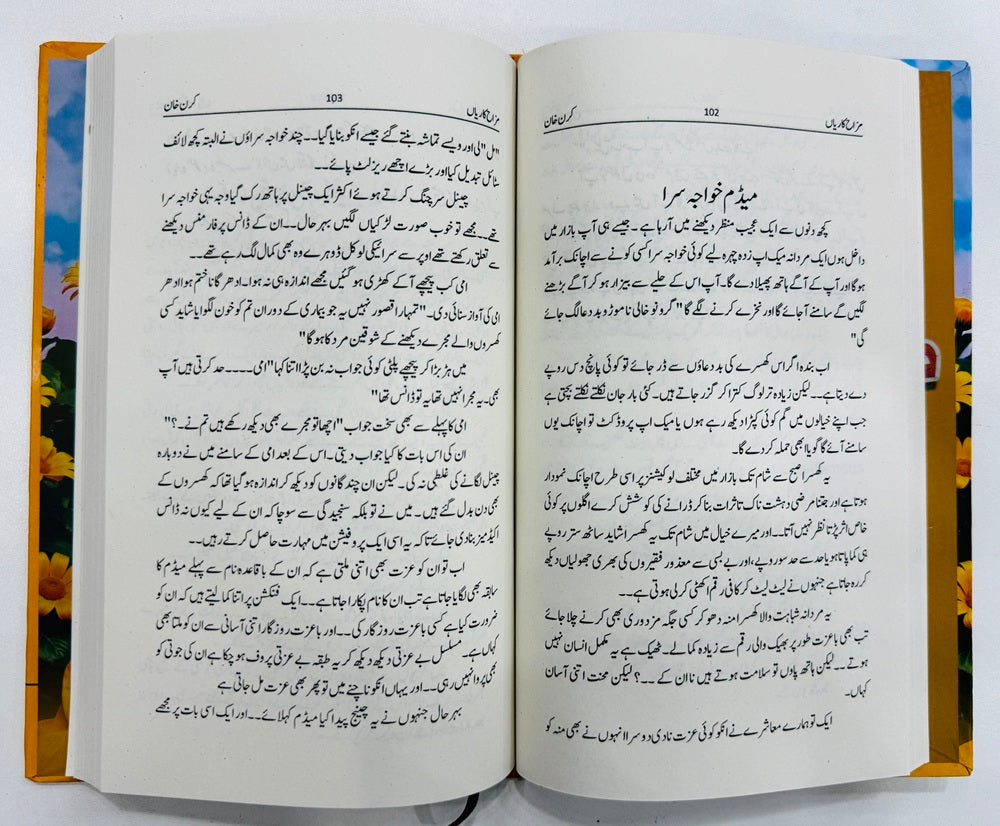 مزاح کاریاں 102 کرن خان
میڈم خواجہ سرا
کچھ دنوں سے ایک عجیب منظر دیکھنے میں آ رہا ہے۔ جیسے ہی آپ بازار میں
داخل ہوں ایک مردانہ میک اپ زدہ چہرہ لیے کوئی خواجہ سرا کسی کونے سے اچانک برآمد
ہو گا اور آپ کے آگے ہاتھ پھیلا دے گا۔ آپ اس کے حلیے سے بیزار ہو کر آگے بڑھنے
لگیں گے سامنے آ جائے گا اور نخرے کرنے لگے گا "گرو نو خالی نا موڑو بددعا لگ جائے
گی"
اب بندہ اگر اس کھسرے کی بددعاؤں سے ڈر جائے تو کوئی پانچ دس روپے
دے دیتا ہے۔۔ لیکن زیادہ تر لوگ کترا کر گزر جاتے ہیں۔ کئی بار جان نکلتے نکلتے بچتی ہے
جب اپنے خیالوں میں گم کوئی کپڑا دیکھ رہے ہوں یا میک اپ پروڈکٹ تو اچانک یوں
سامنے آئے گا گویا ابھی حملہ کر دے گا۔
یہ کھسرا صبح سے شام تک بازار میں مختلف لوکیشنز پر اسی طرح اچانک نمودار
ہوتا ہے اور جتنا مرضی دہشت ناک تاثرات بنا کر ڈرانے کی کوشش کرے اگلوں پر کوئی
خاص اثر پڑتا نظر نہیں آتا۔۔ اور میرے خیال میں شام تک یہ کھسرا شاید ساٹھ ستر روپے
ہی کما پاتا ہو یا حد سے حد سو روپے، اور بے بسی سے معذور فقیروں کی بھری جھولیاں دیکھ
کر رہ جاتا ہے جنہوں نے لیٹ لیٹ کر کافی رقم اکھٹی کر لی ہوتی ہے۔۔
یہ مردانہ شباہت والا کھسرا منہ دھو کر کسی جگہ مزدوری بھی کرنے چلا جائے
تب بھی باعزت طور پر بھیک والی رقم سے زیادہ کما لے۔ ٹھیک ہے یہ مکمل انسان نہیں
ہوتے۔۔ لیکن ہاتھ پاوں تو سلامت ہوتے ہیں نا ان کے ۔۔؟ لیکن محنت اتنی آسان
کہاں۔
ایک تو ہمارے معاشرے نے انکو کوئی عزت نا دی دوسرا انہوں نے بھی منہ کو
مزاح کاریاں 103 کرن خان
"مل" لی اور ویسے تماشہ بنتے گئے جیسے انکو بنایا گیا۔۔ چند خواجہ سراؤں نے البتہ کچھ لائف
سٹائل تبدیل کیا اور بڑے اچھے ریزلٹ پائے۔۔
چینل سرچنگ کرتے ہوئے اکثر ایک چینل پر ہاتھ رک گیا وجہ یہی خواجہ سرا
تھے۔۔ مجھے تو خوب صورت لڑکیاں لگیں بہرحال۔۔ ان کے ڈانس پرفارمنس دیکھنے
سے تعلق رکھتے تھے اوپر سے سرائیکی لوکل ڈوہرے وہ بھی کمال لگ رہے تھے۔۔
امی کب پیچھے آ کے کھڑی ہو گئیں مجھے اندازہ ہی نہ ہوا۔ ادھر گانا ختم ہوا ادھر
امی کی آواز سنائی دی۔ "تمہارا قصور نہیں یہ جو بیماری کے دوران تم کو خون لگوایا شاید کسی
کھسروں والے مجرے دیکھنے کے شوقین مرد کا ہو گا"
میں ہڑبڑا کر پیچھے پلٹی کوئی جواب نہ بن پڑا اتنا کہا "امی۔۔۔۔ حد کرتی ہیں آپ
بھی۔ یہ مجرا نہیں تھا یہ تو ڈانس تھا"
امی کا پہلے سے بھی سخت جواب "اچھا تو مجرے بھی دیکھ رکھے ہیں تم نے۔؟"
ان کی اس بات کا کیا جواب دیتی۔ اس کے بعد امی کے سامنے میں نے دوبارہ
چینل لگانے کی غلطی نہ کی۔ لیکن ان چند گانوں کو دیکھ کر اندازہ ہو گیا تھا کہ کھسروں کے
بھی دن بدل گئے ہیں۔ میں نے تو بلکہ سنجیدگی سے سوچا کہ ان کے لیے کیوں نہ ڈانس
اکیڈمیز بنا دی جائے تا کہ یہ اسی ایک پروفیشن میں مہارت حاصل کرتے رہیں۔۔
اب تو ان کو عزت بھی اتنی ملتی ہے کہ ان کے باقاعدہ نام سے پہلے میڈم کا
سابقہ بھی لگایا جاتا ہے تب ان کا نام پکارا جاتا ہے۔۔ ایک فنکشن پر اتنا کما لیتے ہیں کہ ان کو
ضرورت کیا ہے کسی باعزت روزگار کی۔۔ اور باعزت روزگار اتنی آسانی سے ان کو ملتا بھی
کہاں ہے۔ مسلسل بے عزتی دیکھ دیکھ کر یہ طبقہ بے عزتی پروف ہو چکا ہے ان کی جوتی کو
بھی پروا نہیں رہی۔۔ اور یہاں انکو ناچنے میں تو پھر بھی عزت مل جاتی ہے
بہرحال جنہوں نے یہ چینج پیدا کیا میڈم کہلائے۔۔ اور ایک اسی بات پر مجھے